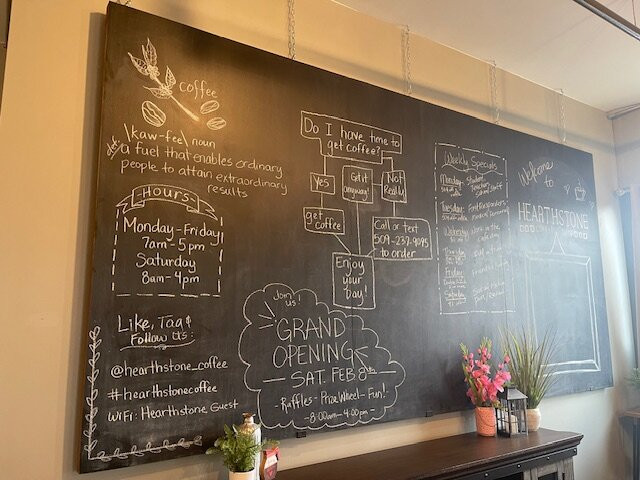 coffee
\kaw-fee\ noun
def: a fuel that enables ordinary
people to attain extraordinary
results
Hours
Monday-Friday
7am-5pm
Saturday
8am-4pm
Like, Tag &
Follow us:
@hearthstone_coffee
#hearthstonecoffee
WiFi: Hearthstone Guest
Do I have time to
get coffee?
Yes
Get it
anyway!
Not
Really
get coffee
Call or text
509-237-9095
to order
Enjoy
your
Day!
Join
us!
GRAND
OPENING
SAT. FEB 8th
-Raffles-Prize Wheel-Fun!-
-8:00am-4:00pm-
Weekly Specials
Monday:
Student
Teacher
School Staff
Tuesday:
First Responders
Wednesday
Friday
Saturday
Welcome
to
HEARTHSTONE